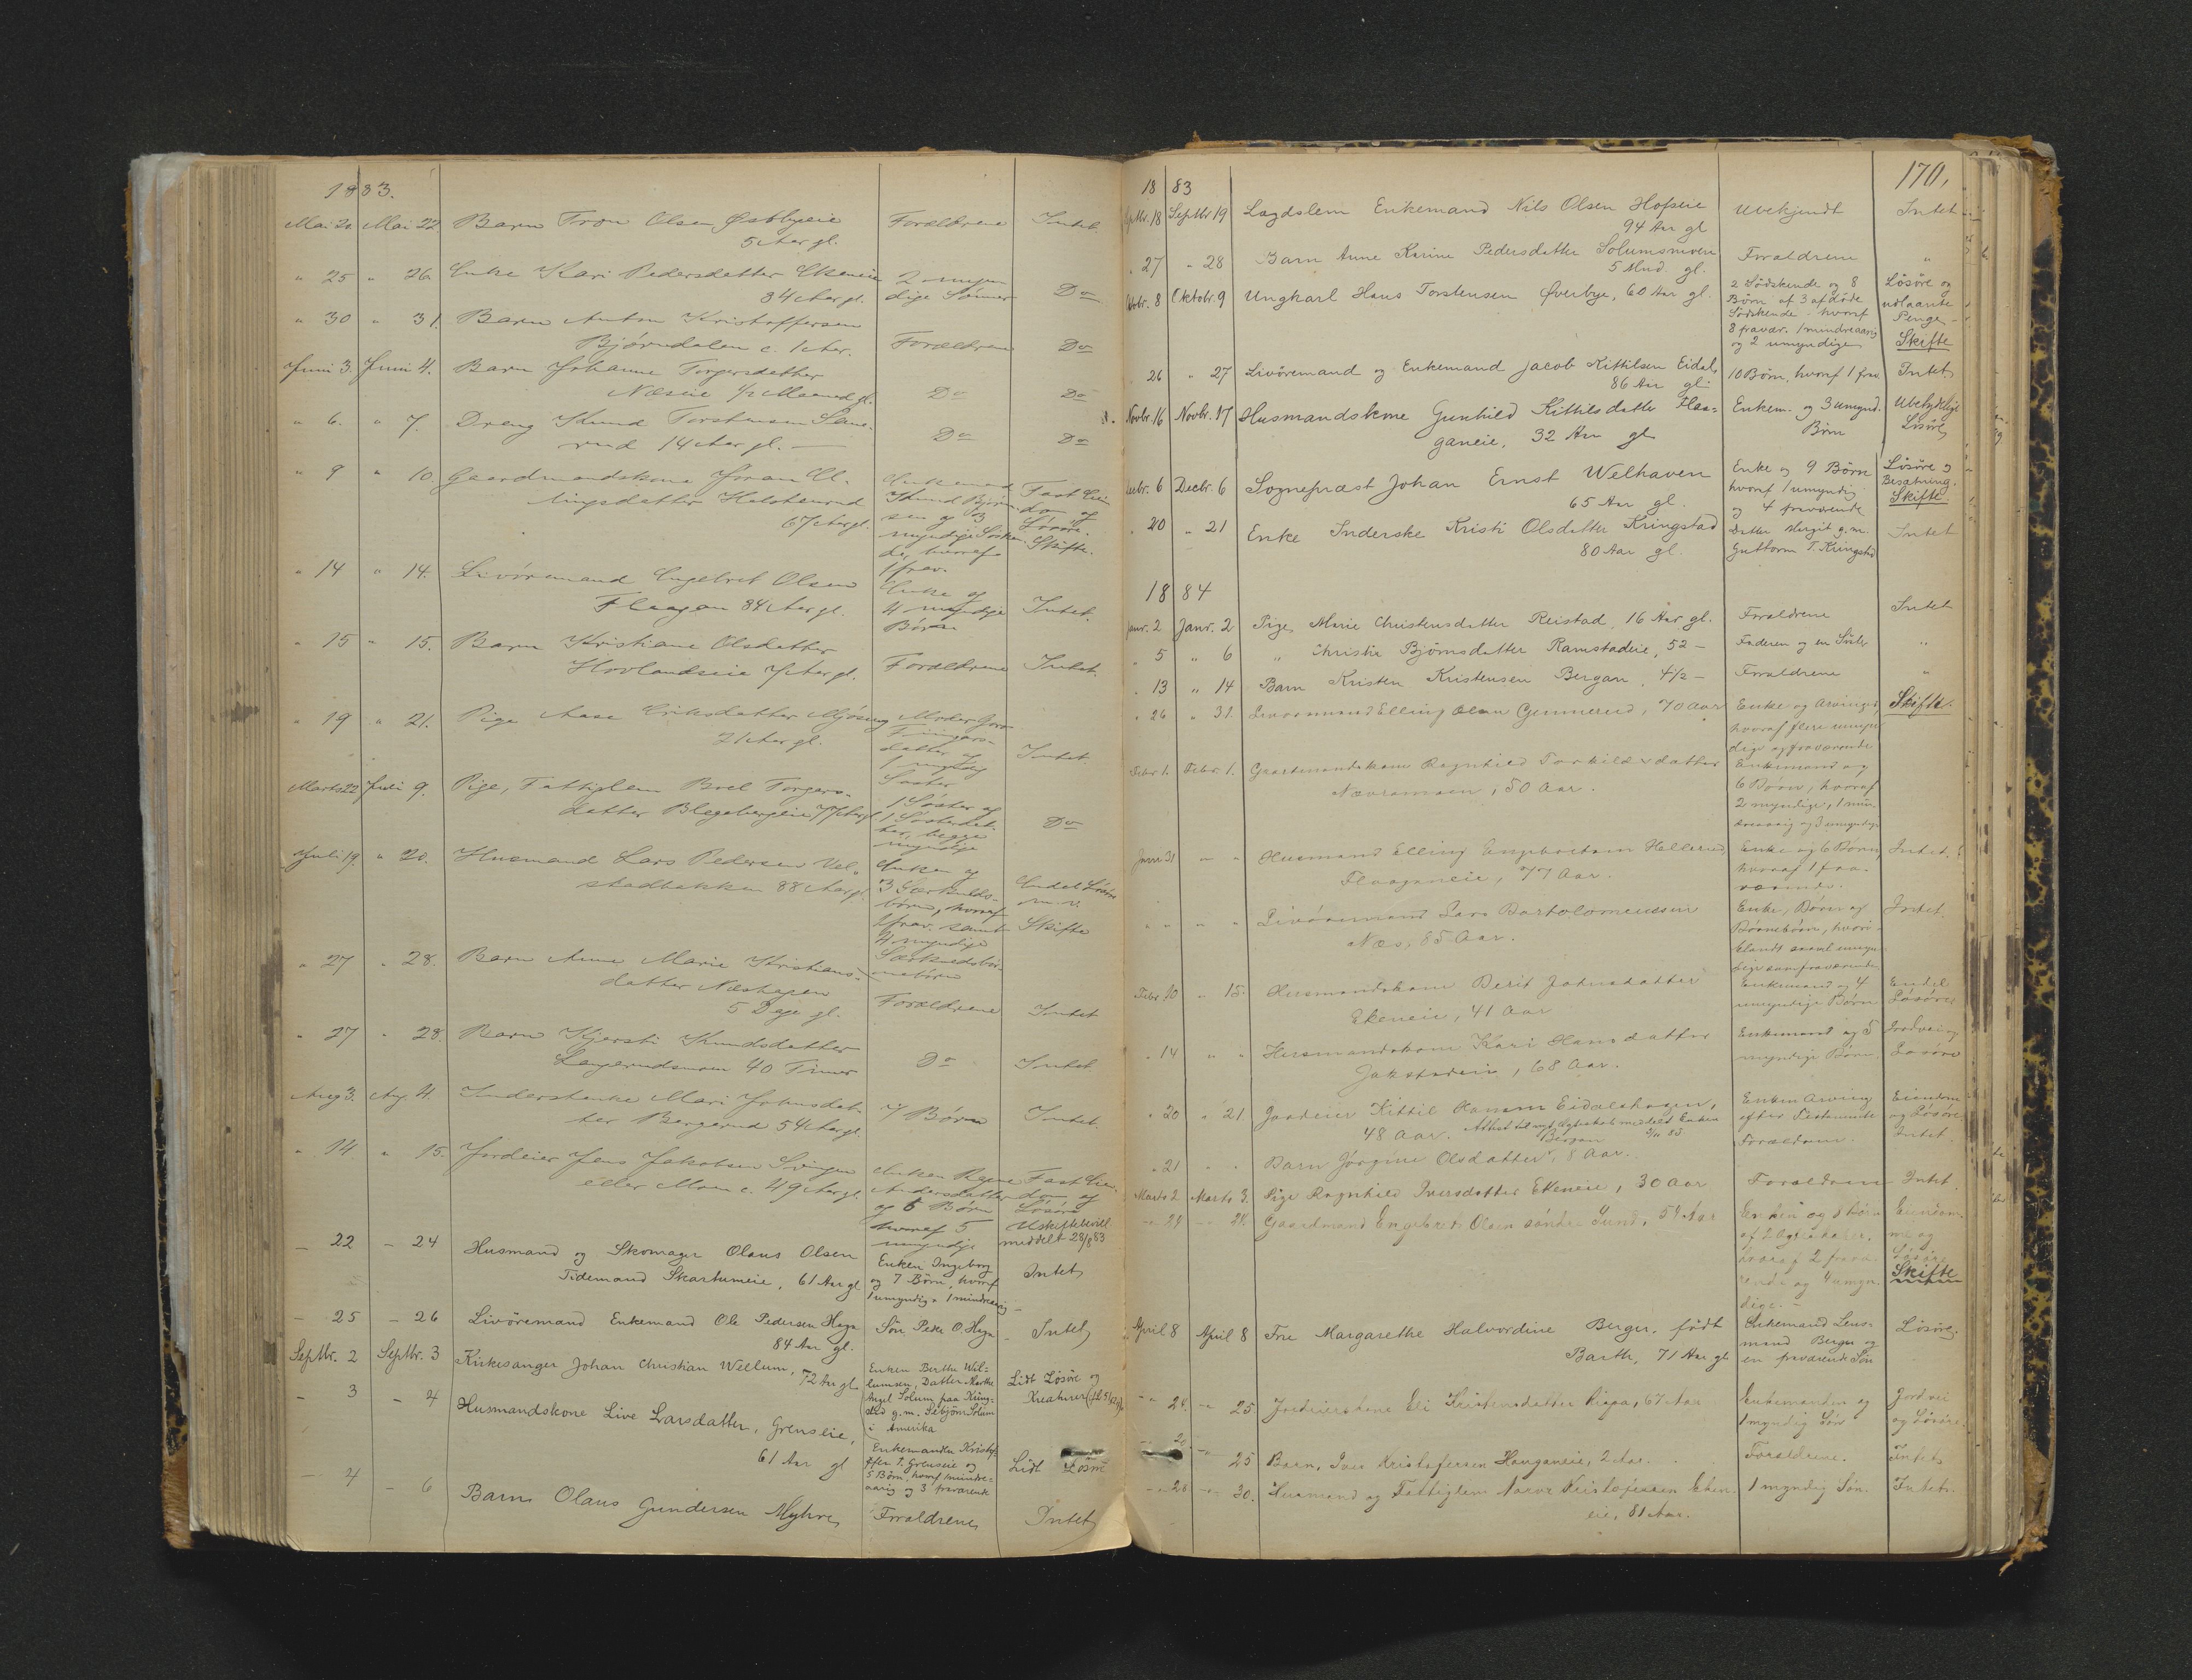 1883.
Mai 20 Mai 22. Barn Tron Olsen Østbyeie Forældrene Intet.
5 Aar gl.
" 25 " 26 Enke Kari Pedersdatter Ekeneie 2 myn-
84 Aar gl. dige Sønner Do
" 30 " 31. Barn Anton Kristoffersen
Bjørndalen c. 1 Aar. Forældrene Do
Juni 3. Juni 4. Barn Johanne Torgersdatter
Næseie 1/2 Maaned gl. Do Do
" 6. " 7. Dreng Knud Torstensen
rud 14 Aar gl. — Do Do
" 9 " 10. Gaardmandskone Joran El-
lingsdatter Halstenrud
67 Aar gl.
Enkemand
Knud Bjørn-
sen og 3
myndige Søsken-
de, hvoraf
1 frav.
Fast Eien-
dom og
Løsøre.
Skifte.
" 14 " 14. Livøremand Engebret Olsen
Flaagan 84 Aar gl.
Enke og
4 myndige
Børn
Intet.
" 15 " 15. Barn Kristiane Olsdatter
Hovlandseie 7 Aar gl. Forældrene Intet.
" 19 " 21. Pige Aase Eriksdatter Mjøsung
21 Aar gl.
Moder Goro
datter og
1 myndig
Søster
Intet.
Marts 22 Juli 9. Pige, Fattiglem Boel Torgers-
datter Blegebergeie 77 Aar gl.
1 Søster og
1 Søsterdat-
ter, begge
myndige
Do
Juli 19. " 20. Husmand Lars Pedersen Vel-
stadbakken 88 Aar gl.
Enken og
3 Særkulds-
børn, hvoraf
1 frav. samt
4 myndige
Særkuldsbør-
nebørn
Endel Løsøre
m. v.
Skifte
" 27 " 28. Barn Anne Marie Kristians-
datter Næshagen
5 Dage gl. Forældrene Intet
" 27 " 28. Barn Kjersti Knudsdatter
Lagerudsmoen 40 Timer Do Intet
Aug 3. Aug 4. Inderstenke Mari Johnsdat-
ter Bergerud 54 Aar gl. 7 Børn Intet.
" 14 " 15. Jordeier Jens Jakobsen Svingen
eller Moen c. 49 Aar gl.
Enken Ragne
Andersdatter
og 6 Børn
hvoraf 5
umyndige
Fast Eien-
dom og
Løsøre
Uskiftebevill.
meddelt 28/8 83
— 22 — 24 Husmand og Skomager Olaus Olsen
Tidemand Skartumeie, 61 Aar gl
Enken Ingeborg
og 7 Børn, hvoraf
1 umyndig & 1 mindreaarig
Intet
— 25 — 26 Livöremand Enkemand Ole Pedersen Haga
84 Aar gl. Sön Peder O. Haga — Intet
Septbr. 2 Septbr. 3 Kirkesanger Johan Christian Wellum,
72 Aar gl
Enken Berthe Wel-
lumsen, Datter Marthe
Angel Solum paa Kring-
stad g. m. Sebjörn Solum
i Amerika
Lidt Løsöre og
Kreaturer
— 3 — 4 Husmandskone Live Larsdatter, Grenseie,
61 Aar gl
Enkemanden Kristof-
ffer T. Grenseie og
5 Børn, hvoraf 1 mindre-
aarig og 3 fraværende
Lidt Løsøre
— 4 — 6 Barn Olaus Gundersen Myhre, Forældrene, Intet
170.
18 83
Septbr. 18 Septbr 19 Lægdslem Enkemand Nils Olsen Hofseie Ubekjendt Intet
94 Aar gl
" 27 " 28 Barn Anne Karine Pedersdatter Solumsmoen Forældrene "
5 Mnd. gl.
Oktobr. 8 Oktobr. 9 Ungkarl Hans Torstensen Øverbye, 60 Aar gl.
2 Södskende og 8
Börn af 3 afdöde
Södskende - hvoraf
8 fravær. 1 mindreaarig
og 2 umyndige
Lösöre og
udlaante
Penge -
Skifte
" 26 " 27 Livöremand og Enkemand Jacob Kittilsen Eidal, 10 Börn, hvoraf 1 frav. Intet
86 Aar gl
Novbr. 16 Novbr. 17 Husmandskone Gunhild Kittilsdatter Flaa-
ganeie, 32 Aar gl
Enkem. og 3 umynd.
Börn
Ubetydeligt
Lösöre
Decbr. 6 Decbr. 6 Sognepræst Johan Ernst Welhaven
65 Aar gl.
Enke og 9 Börn
hvoraf 1 umyndig
og 4 fraværende
Lösöre og
Besætning.
Skifte.
" 20 " 21 Enke Inderske Kristi Olsdatter Kringstad
80 Aar gl.
Datter Margit g. m.
Guttorm T. Kringstad
Intet
18 84
Janr. 2 Janr. 2 Pige, Marie Christensdatter Reistad, 16 Aar gl. Forældrene Intet
" 5 " 6 " Christie Bjørnsdatter Ramstadeie, 52 — Faderen og en Söster "
" 13 " 14 Barn Kristen Kristensen Bergan, 4 1/2 — Forældrene "
" 26 " 31. Livøremand Elling Olsen Gunnerud, 70 Aar
Enke og Arvinger,
hvoraf flere umyn-
dige og fraværende
Skifte.
Febr 1. Febr. 1. Gaardmandskone Ragnhild Torkildsdatter
Nævramoen, 50 Aar.
Enkemand og
6 Børn, hvoraf
2 myndige, 1 min-
dreaarig og 3 umyndige
Janr 31 " " Husmand Elling Engebretsen Hellerud
Flaaganeie, 77 Aar.
Enke og 6 Børn,
hvoraf 1 fra-
værende.
Intet.
" " " " Livøremand Lars Bartolomeussen
Næs, 85 Aar.
Enke, Børn og
Børnebørn, hvori-
blandt saavel umyn-
dige som fraværende
Intet.
Febr. 10 " 15. Husmandskone Berit Johnsdatter
Ekeneie, 41 Aar
Enkemand og 4
umyndige Børn
Endel
Løsøre
" 14 " " Husmandskone Kari Hansdatter
Jokstadeie, 68 Aar.
Enkemand og 5
myndige Børn.
Jordvei og
Løsøre
" 20 " 21. Gaardeier Kittil Hansen Eidalshagen,
48 Aar. Attest til nyt Ægteskab meddelt Enken
Enken Arving
efter Testamente
Eiendom
og Løsøre
" 21 " " Barn Jørgine Olsdatter Bergan, 8 Aar. Forældrene. Intet.
Marts 2 Marts 3. Pige Ragnhild Iversdatter Ekeneie, 30 Aar Forældrene Intet.
Gaardmand Engebret Olsen søndre Lund, 59 Aar
Enken og Børn
af 2 Ægteskaber,
hvoraf 2 fravæ-
rende og 4 umyn-
dige. —
Eiendom-
me og
Løsøre
Skifte
April 8 April 8 Fru Margarethe Halvordine Berger, født
Barth, 71 Aar gl
Enkemand Lens-
mand Berger og
en fraværende Søn
Løsøre.
—"— 24. —"— 25 Jordeierskone Eli Kristensdatter Ringa, 67 Aar
Enkemanden og
1 myndig Søn
Jordvei
og Løsøre.
—"— 20 —"— 25 Barn, Iver Kristofersen Hauganeie, 2 Aar. Forældrene. Intet,
—"— 28 —"— 30. Husmand og Fattiglem Narve Kristofersen Eken-
eie, 81 Aar. 1 myndig Søn. Intet.